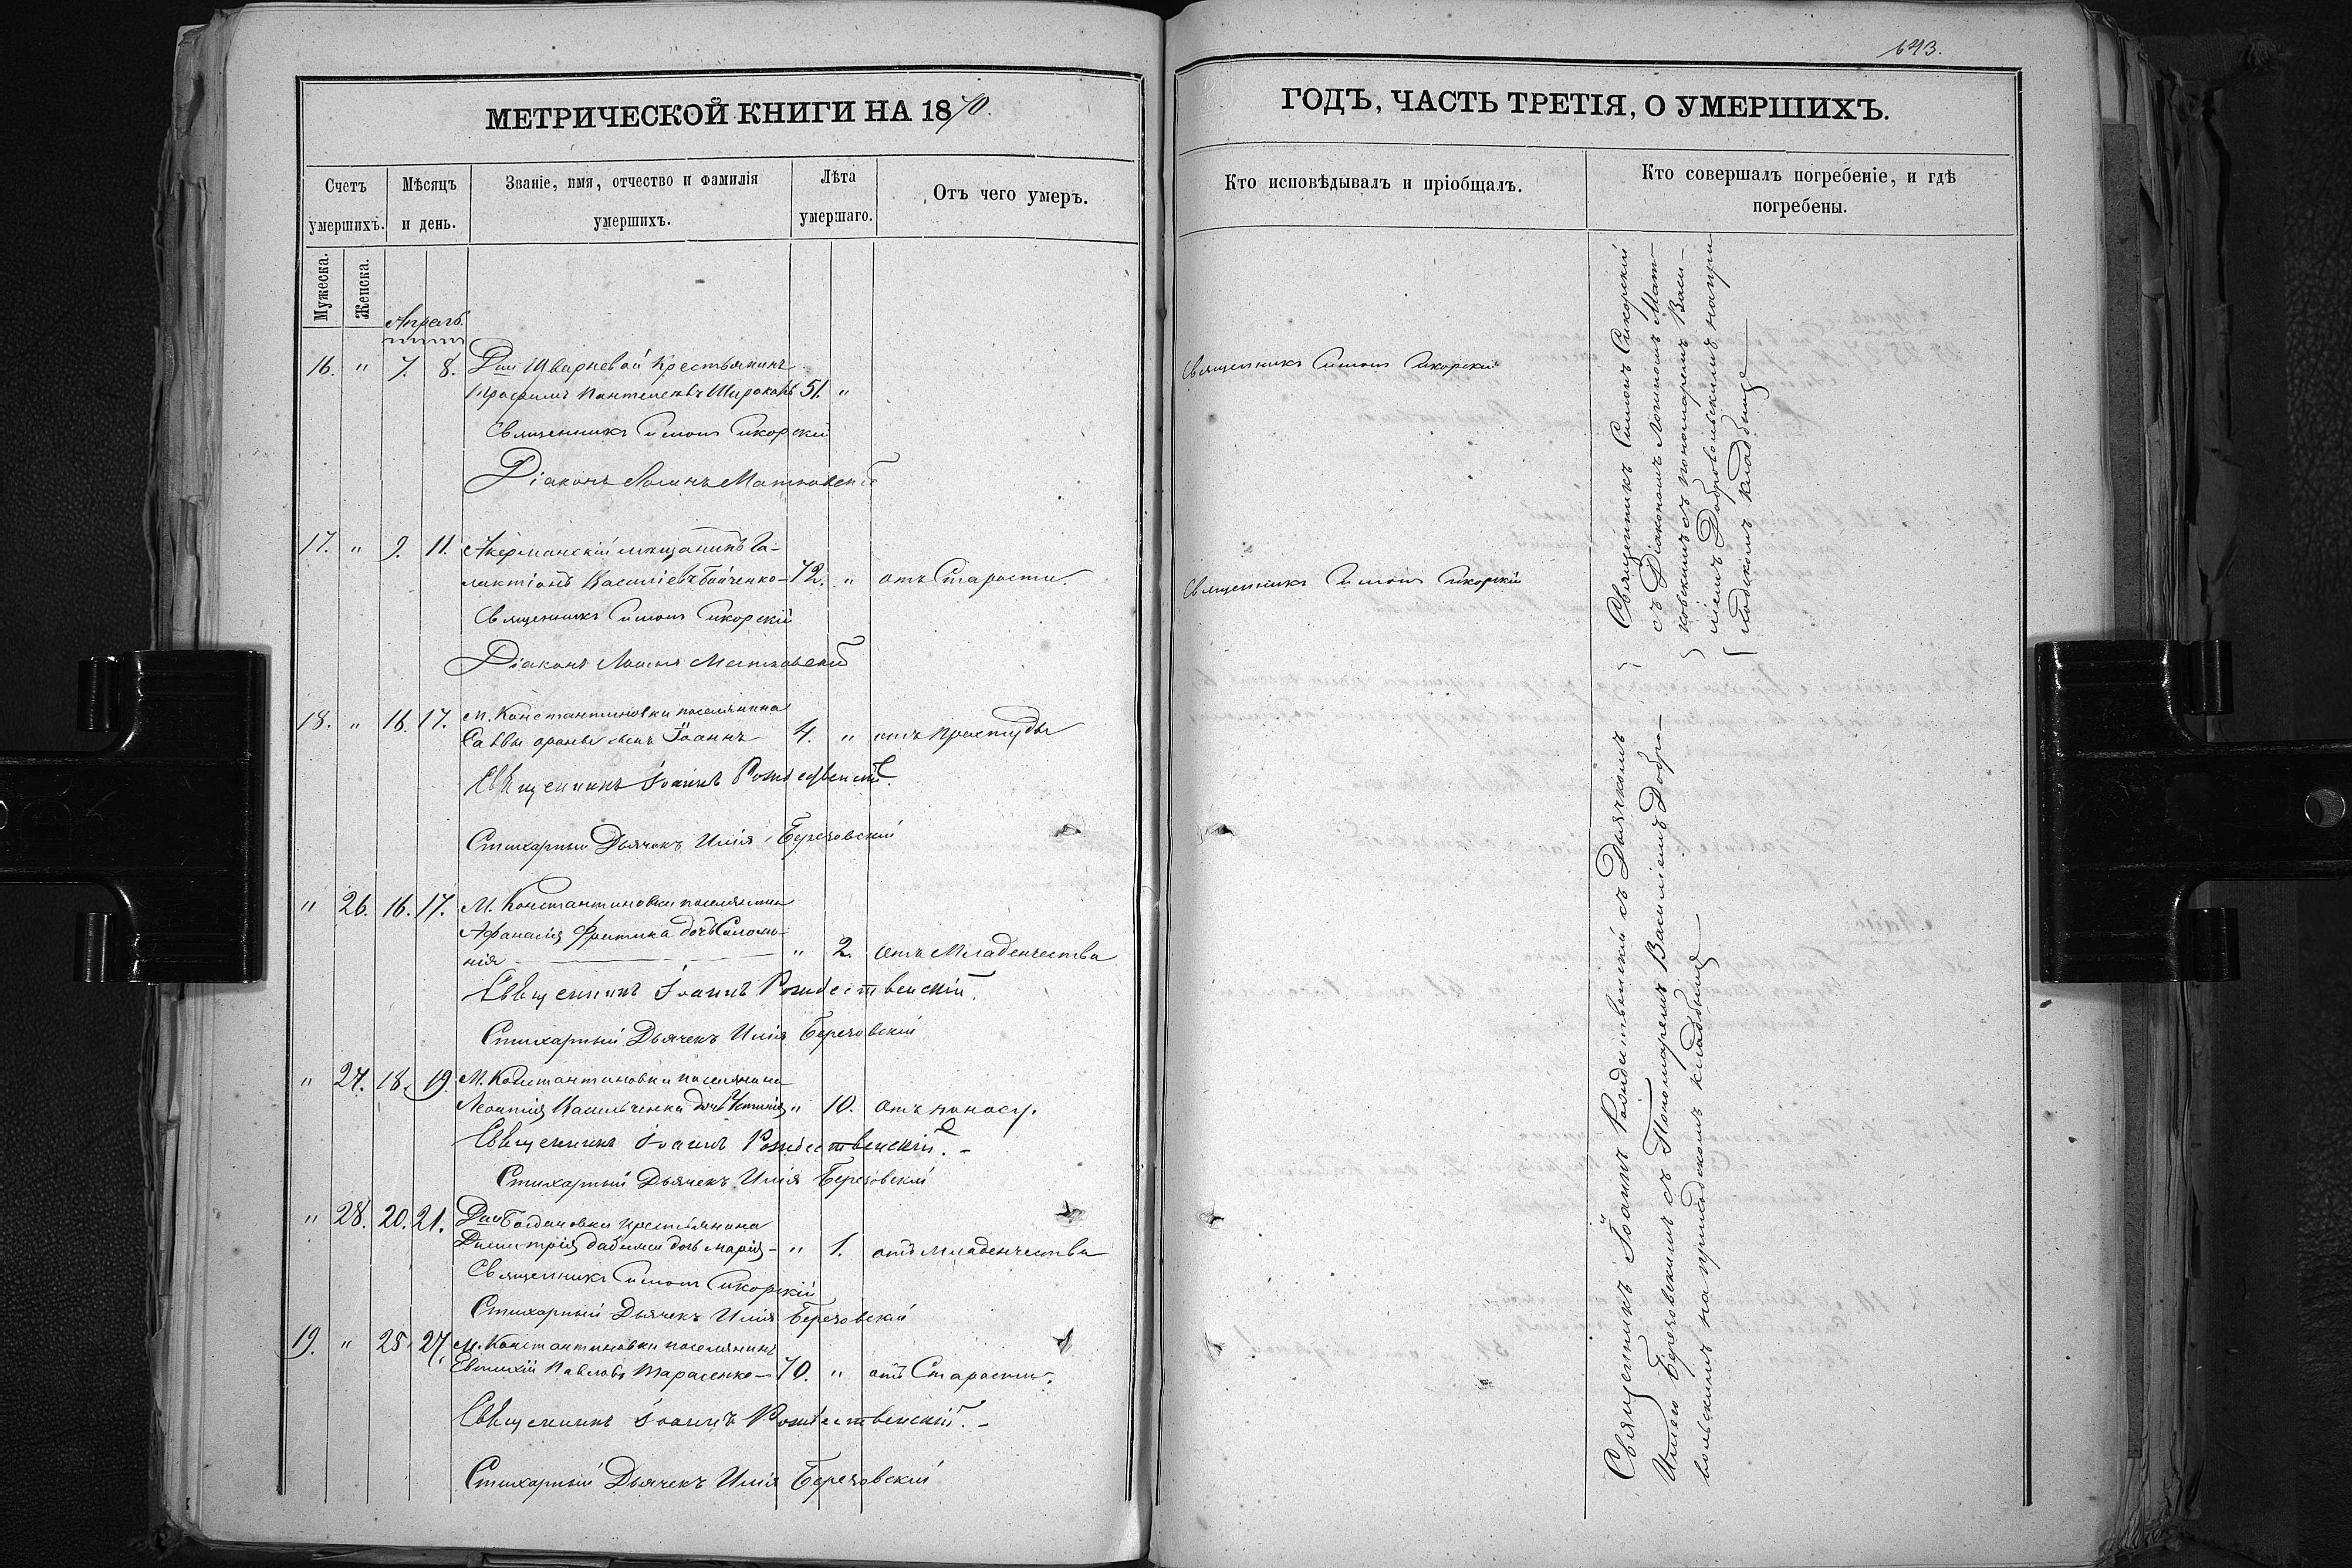 643.
МЕТРИЧЕСКОЙ КНИГИ НА 1870.
Счетъ умершихъ.
Мѣсяцъ и день.
Званіе, имя, отчество и фамилія умершихъ.
Лѣта умершаго.
Отъ чего умеръ.
Мужеска.
Женска.
Апрель.
16. " 7. 8. Дни крестьянинъ
51. "
Священникъ Симонъ Сикорскій
Діаконъ Логинъ Матковскій
17. " 9. 11. Акерманскій мещанинъ Га-
лактіонъ Василіевъ Бойченко - 72. " отъ Старости.
Священникъ Симонъ Сикорскій
Діаконъ Логинъ Матковскій
18. " 16. 17. М. Константиновки поселянина
Саввы сынъ Іоаннъ 4. " отъ простуды
Священникъ Іоаннъ Рождественскій.
Стихарный Дьячекъ Илія Березовскій
" 26. 16. 17. М. Константиновки поселянина
Афанасія дочь Соломо-
нія " 2. отъ Младенчества
Священникъ Іоаннъ Рождественскій.
Стихарный Дьячекъ Илія Березовскій
" 27. 18. 19. М. Константиновки поселянина
Леонтія Васильченка дочь " 10. отъ поносу.
Священникъ Іоаннъ Рождественскій. -
Стихарный Дьячекъ Илія Березовскій
" 28. 20. 21. Дни Богдановки крестьянина
Димитрія дочь Марія - " 1. отъ младенчества
Священникъ Симонъ Сикорскій
Стихарный Дьячекъ Илія Березовскій
19. " 25. 27. М. Константиновки поселянинъ
Евтихій Павловъ Тарасенко - 70. " отъ Старости.
Священникъ Іоаннъ Рождественскій. -
Стихарный Дьячекъ Илія Березовскій
ГОДЪ, ЧАСТЬ ТРЕТІЯ, О УМЕРШИХЪ.
Кто исповѣдывалъ и пріобщалъ.
Кто совершалъ погребеніе, и гдѣ
погребены.
Священникъ Симонъ Сикорскій
Священникъ Симонъ Сикорскій
Священникъ Симонъ Сикорскій
съ Діакономъ Логиномъ Мат-
ковскимъ съ пономаремъ Васи-
ліемъ Добровольскимъ на при-
ходскомъ кладбище
Священникъ Іоаннъ Рождественскій съ Дьячкомъ
Иліею Березовскимъ съ Пономаремъ Василіемъ Добро-
вольскимъ на приходскомъ кладбище